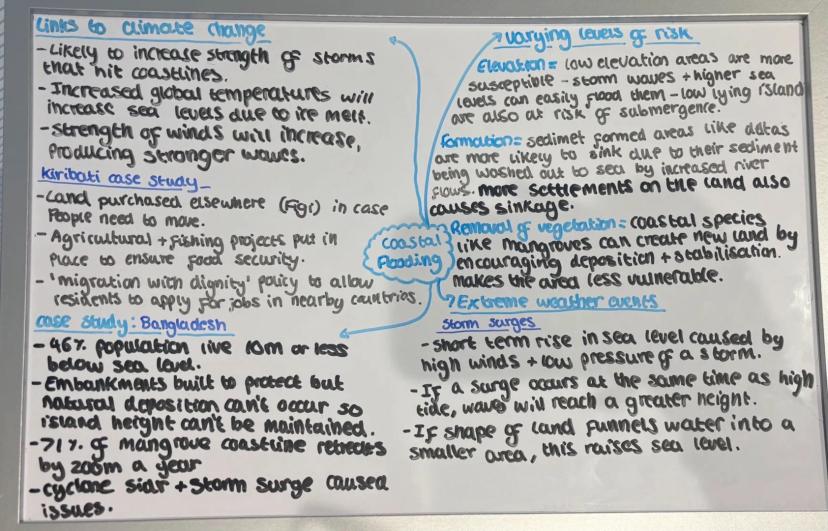 Links to climate change
- Likely to increase strength of storms
that hit coastlines.
- Increased global temperatures will
increase sea levels due to ice melt.
- Strength of winds will increase,
producing stronger waves.
Kiribati case study
- Land purchased elsewhere (Fiji) in case
people need to move.
- Agricultural + fishing projects put in
place to ensure food security.
- 'migration with dignity' policy to allow
residents to apply for jobs in nearby countries.
case study: Bangladesh
- 46% population live 10m or less
below sea level.
- Embankments built to protect but
natural deposition can't occur so
island height can't be maintained.
- 71% of mangrove coastline retreats
by 200m a year
- cyclone sidr + storm surge caused
issues.
coastal
flooding
varying levels of risk
Elevation = low elevation areas are more
susceptible - storm waves + higher sea
levels can easily flood them - low lying island
are also at risk of submergence.
Formation = sedimet formed areas like deltas
are more likely to sink due to their sediment
being washed out to sea by increased river
flows. more settlements on the land also
causes sinkage.
Removal of vegetation = coastal species
like mangroves can create new land by
encouraging deposition + stabilisation.
makes the area less vulnerable.
Extreme weather events
Storm surges
- short term rise in sea level caused by
high winds + low pressure of a storm.
- If a surge occurs at the same time as high
tide, waves will reach a greater height.
- If shape of land funnels water into a
smaller area, this raises sea level.